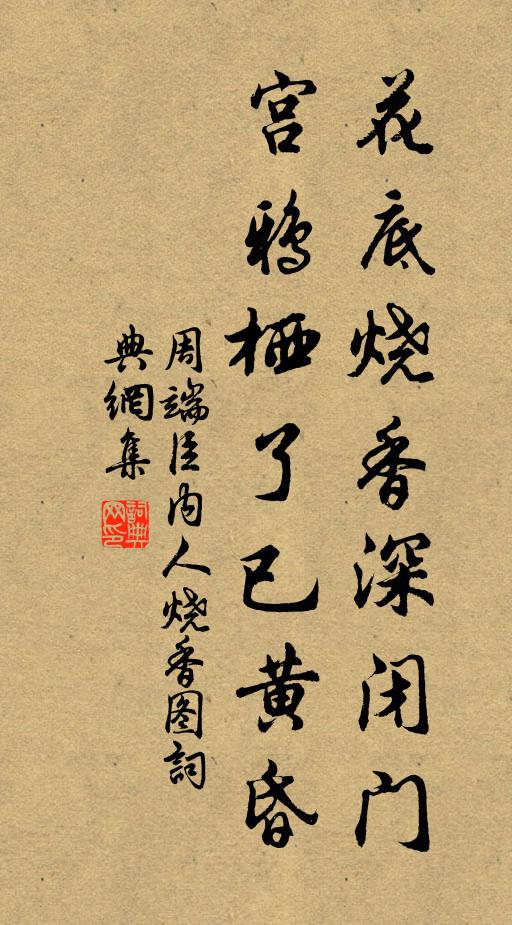 花底烧香深闭门
宫鸦栖了已黄昏
周端臣内人烧香图詞
典網集
詞典
网印